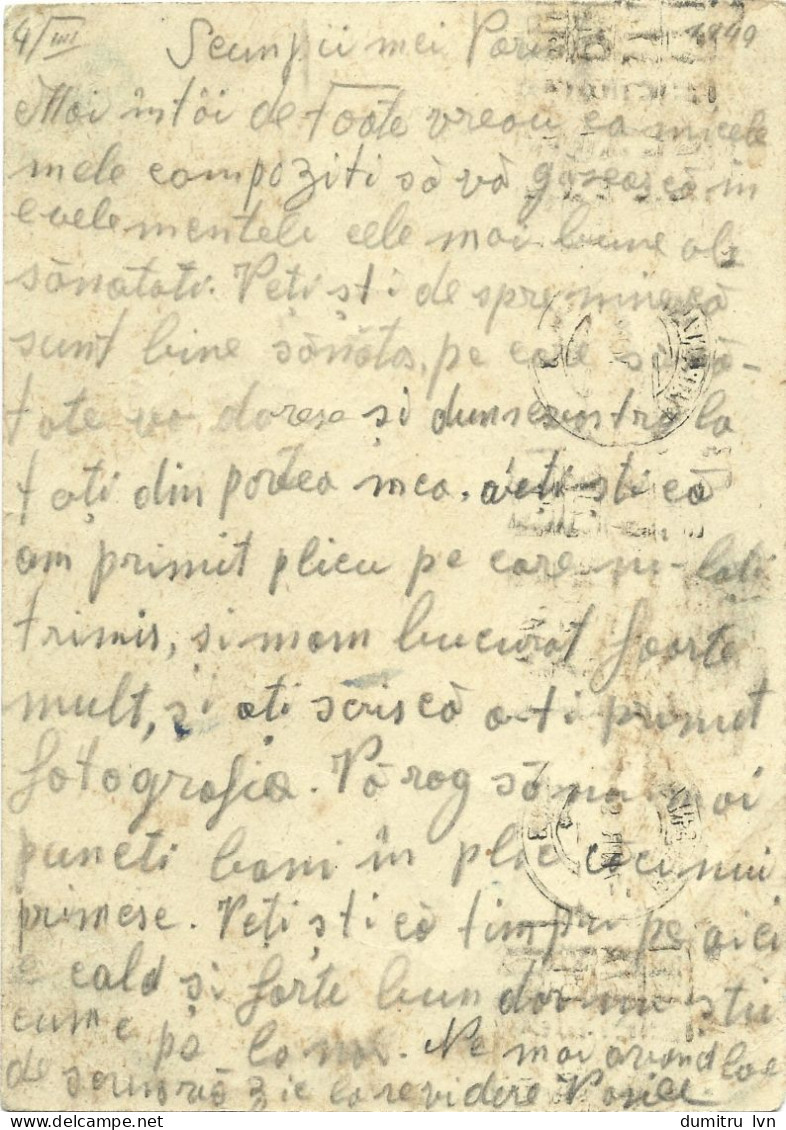 4/III 1949
Scumpii mei
Mai întâi de toate vreau ca micele
mele compoziti să vă găsească in
evelementele cele mai bune ale
sănatati. Veți ști despre mine că
sunt bine sănătos, pe care sănă-
tate vo doresc și dumnevostră la
toți din partea mea. veti sti că
am primit plicu pe care mi-lati
trimis, si mam bucurat foarte
mult, și ati scris că a-ti primit
fotografia. Vă rog să nu mai
puneti bani în plic căci nui
primesc. Veți ști că timpu pe aici
e cald și forte bun dar nu stiu
cum e pă la noi. Ne mai avand loc
de scris vă zic la revidere Vasile.
dumitru lvn